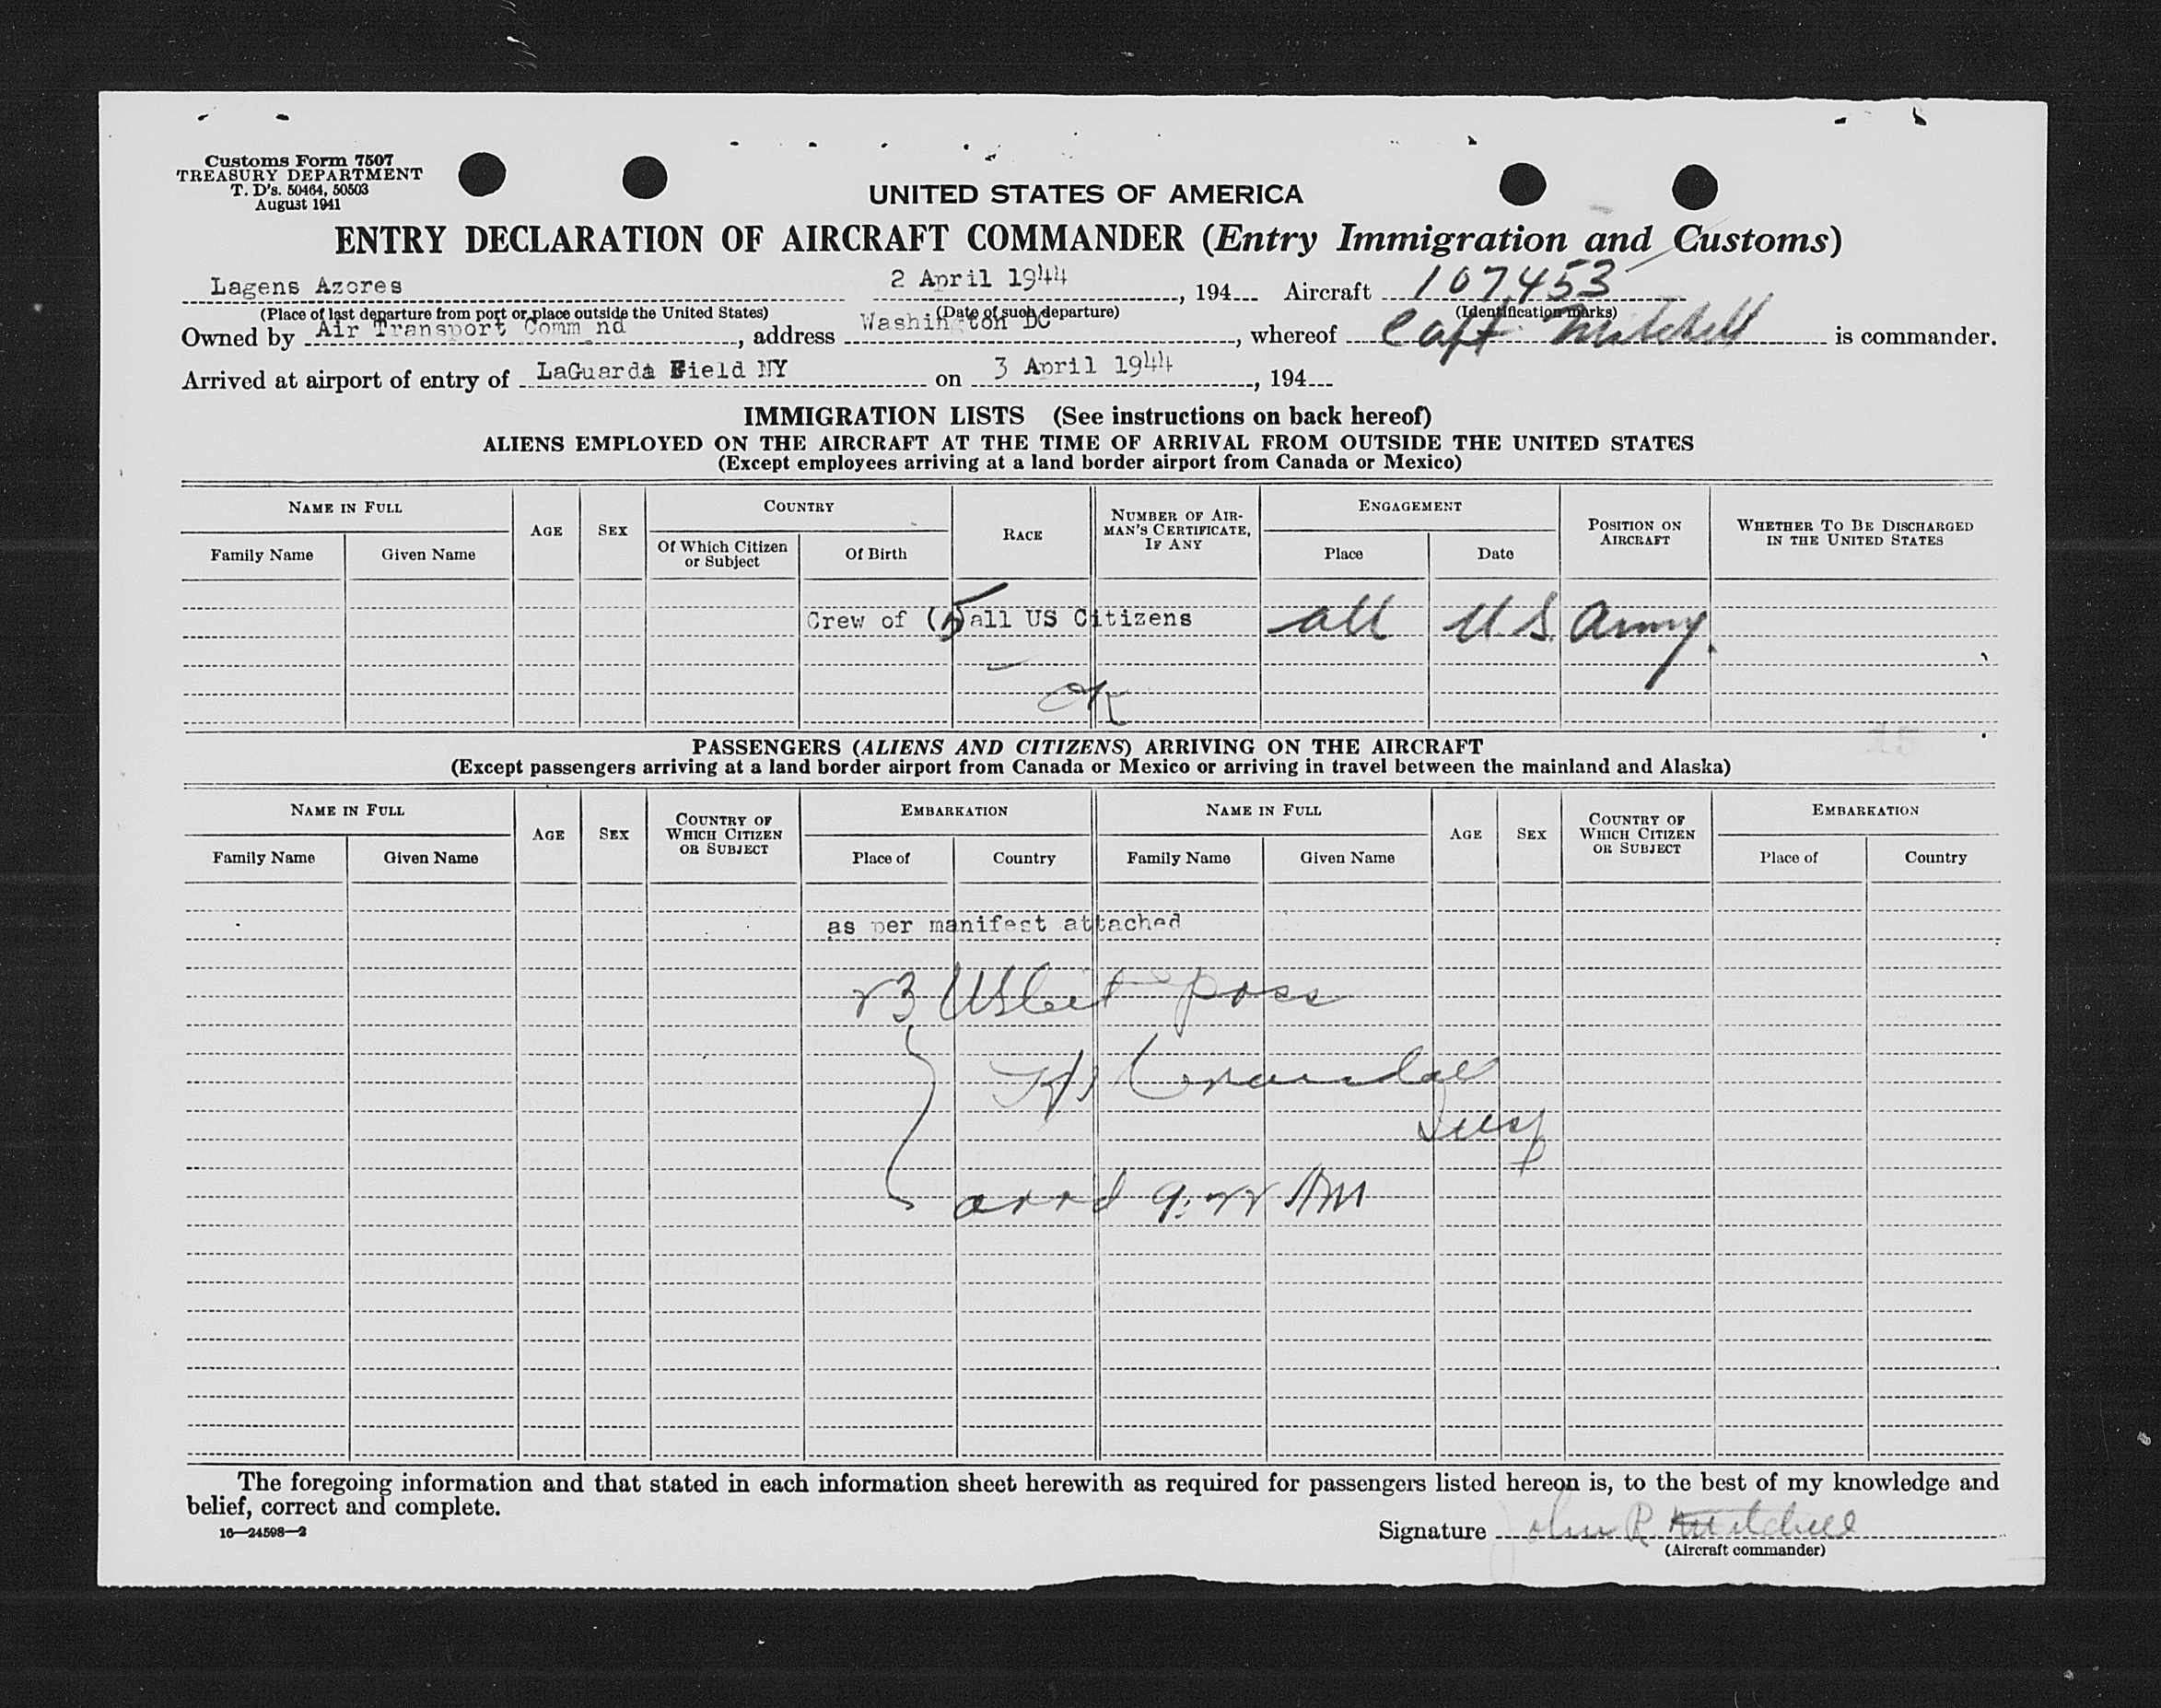 Customs Form 7507
TREASURY DEPARTMENT
T. D's. 50464, 50503
August 1941
UNITED STATES OF AMERICA
ENTRY DECLARATION OF AIRCRAFT COMMANDER (Entry Immigration and Customs)
Lagens Azores 2 April 1944, 194 Aircraft 107453
(Place of last departure from port or place outside the United States) (Date of such departure) (Identification marks)
Owned by Air Transport Comm nd, address Washington DC, whereof Capt Mitchell is commander.
Arrived at airport of entry of LaGuarda Field NY on 3 April 1944, 194
IMMIGRATION LISTS (See instructions on back hereof)
ALIENS EMPLOYED ON THE AIRCRAFT AT THE TIME OF ARRIVAL FROM OUTSIDE THE UNITED STATES
(Except employees arriving at a land border airport from Canada or Mexico)
NAME IN FULL AGE SEX COUNTRY RACE NUMBER OF AIRMAN'S CERTIFICATE, IF ANY ENGAGEMENT POSITION ON AIRCRAFT WHETHER TO BE DISCHARGED IN THE UNITED STATES
Family Name Given Name Of Which Citizen or Subject Of Birth Place Date
Crew of (5) all US Citizens all U.S. Army.
OK
PASSENGERS (ALIENS AND CITIZENS) ARRIVING ON THE AIRCRAFT
(Except passengers arriving at a land border airport from Canada or Mexico or arriving in travel between the mainland and Alaska)
NAME IN FULL AGE SEX COUNTRY OF WHICH CITIZEN OR SUBJECT EMBARKATION NAME IN FULL AGE SEX COUNTRY OF WHICH CITIZEN OR SUBJECT EMBARKATION
Family Name Given Name Place of Country Family Name Given Name Place of Country
as per manifest attached
23 US Cit pass
Insp
arrd 9:22 AM
The foregoing information and that stated in each information sheet herewith as required for passengers listed hereon is, to the best of my knowledge and
belief, correct and complete.
16—24598—2
Signature John R Mitchell
(Aircraft commander)